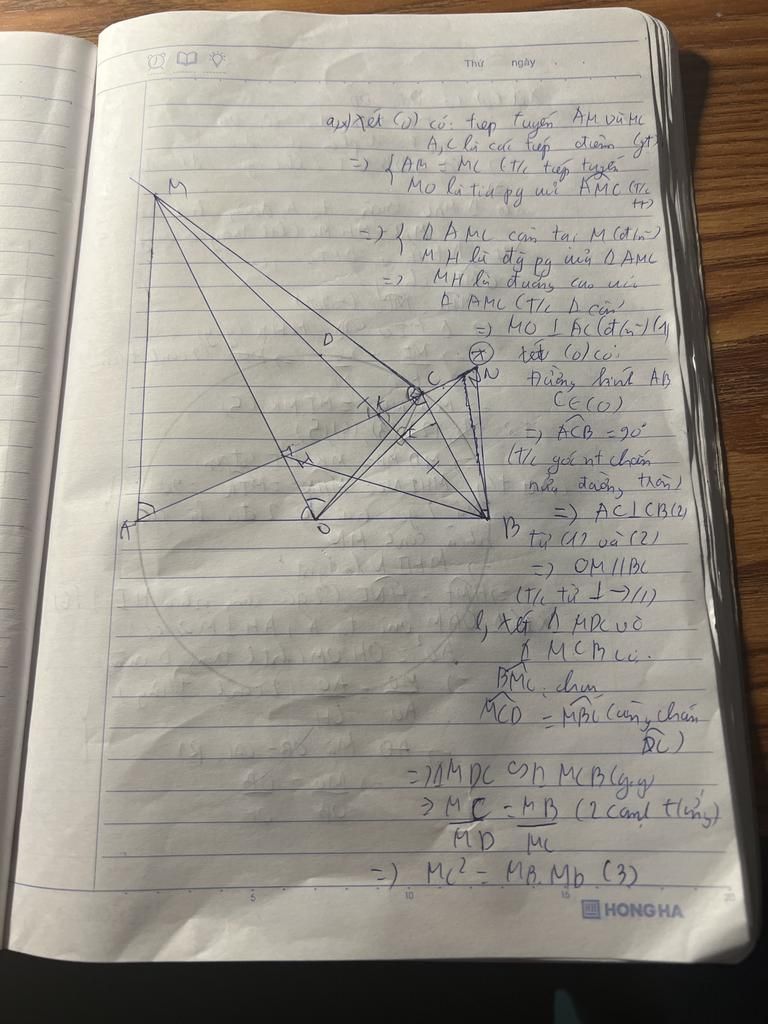 Thứ ngày
a, *) Xét (O) có: tiếp tuyến AM và MC
A, C là các tiếp điểm (gt)
=> { AM = MC (T/c tiếp tuyến
MO là tia pg của AMC (T/c
tt)
=> { Δ AMC cân tại M (đ/n)
MH là đg pg của Δ AMC
=> MH là đường cao của
Δ AMC (T/c Δ cân)
=> MO ⊥ AC (đ/n) (1)
* xét (O) có:
Đường kính AB
C ∈ (O)
=> ACB = 90°
(T/c góc nt chắn
nửa đường tròn)
=> AC ⊥ CB (2)
từ (1) và (2)
=> OM // BC
(T/c từ ⊥ -> //)
b, Xét Δ MDC và
Δ MCB có:
BMC: chung
MCD = MBC (cùng chắn
DC)
=> Δ MDC ∽ Δ MCB (g.g)
=> MC/MD = MB/MC (2 cạnh t/ứng)
=> MC² = MB. MD (3)
M
D
C
N
K
I
H
A
O
B
5
10
15
20
HONG HA